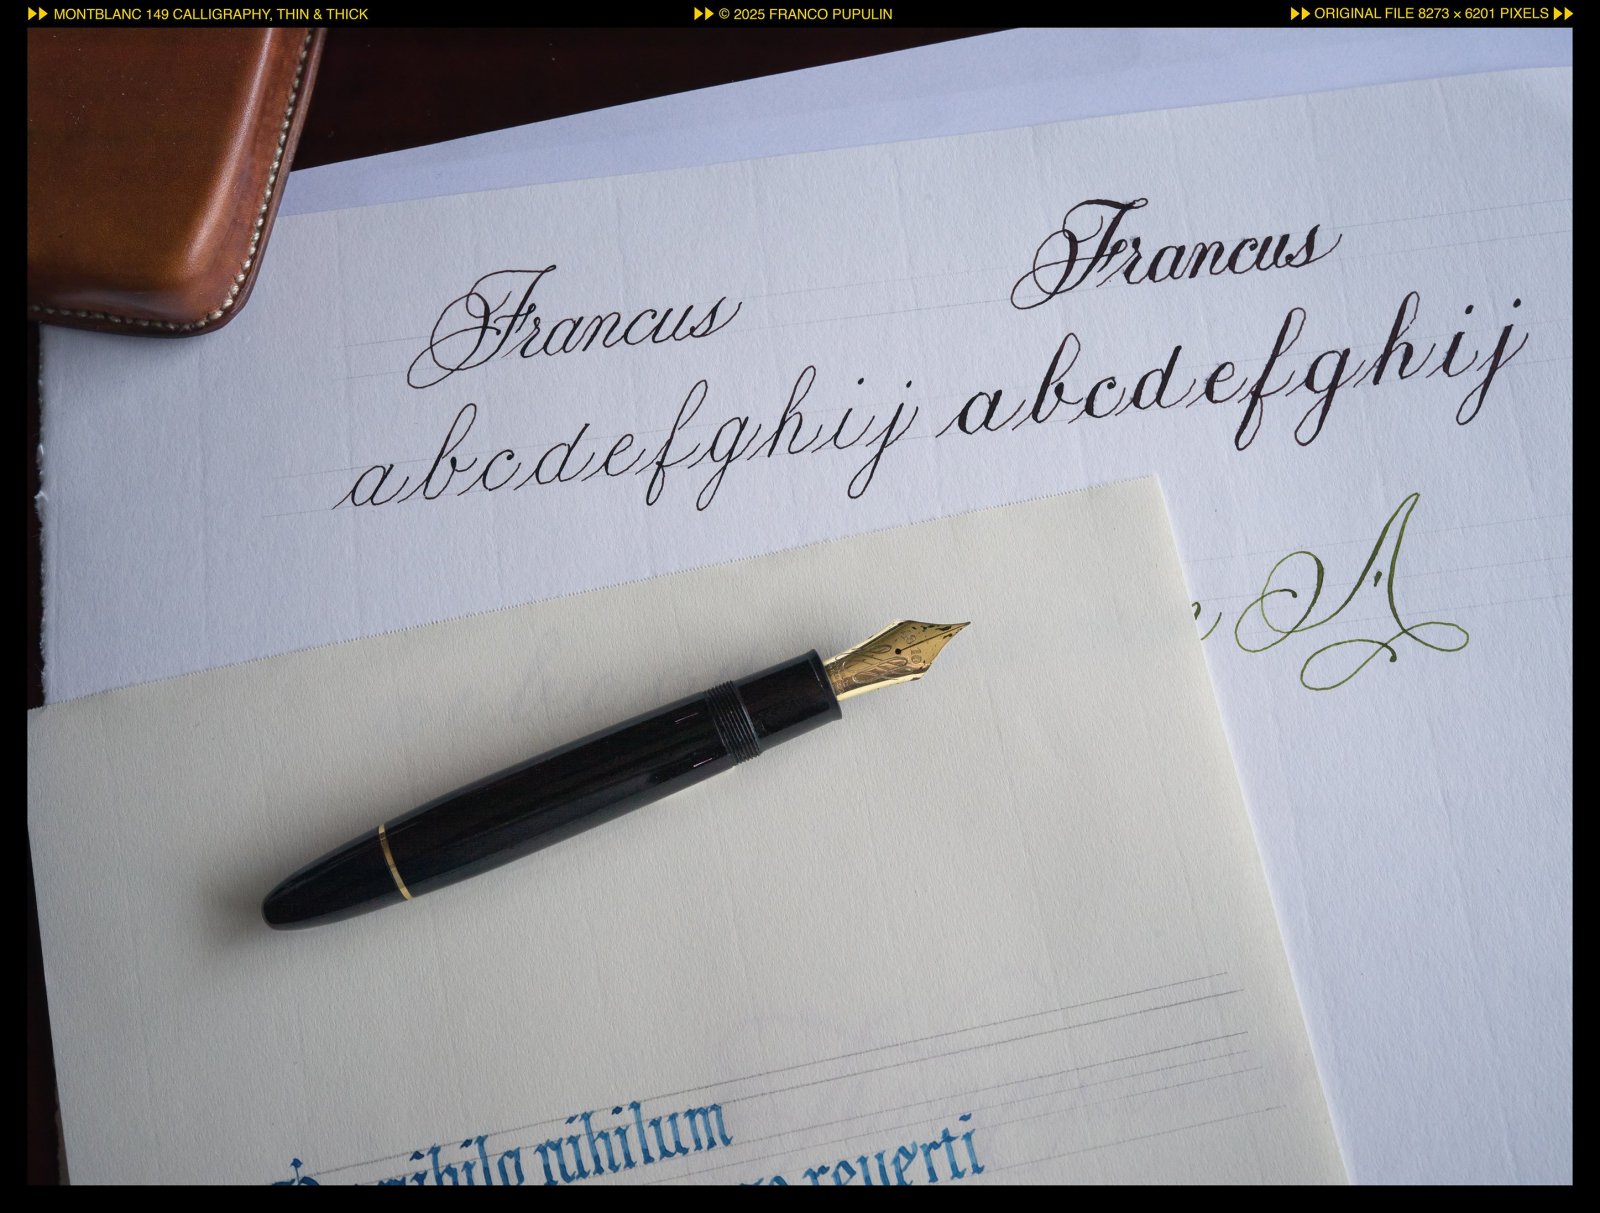 ▶▶ MONTBLANC 149 CALLIGRAPHY, THIN & THICK
▶▶ © 2025 FRANCO PUPULIN
▶▶ ORIGINAL FILE 8273 × 6201 PIXELS ▶▶
Francus
Francus
a b c d e f g h i j
a b c d e f g h i j
A
nihilo nihilum
reverti